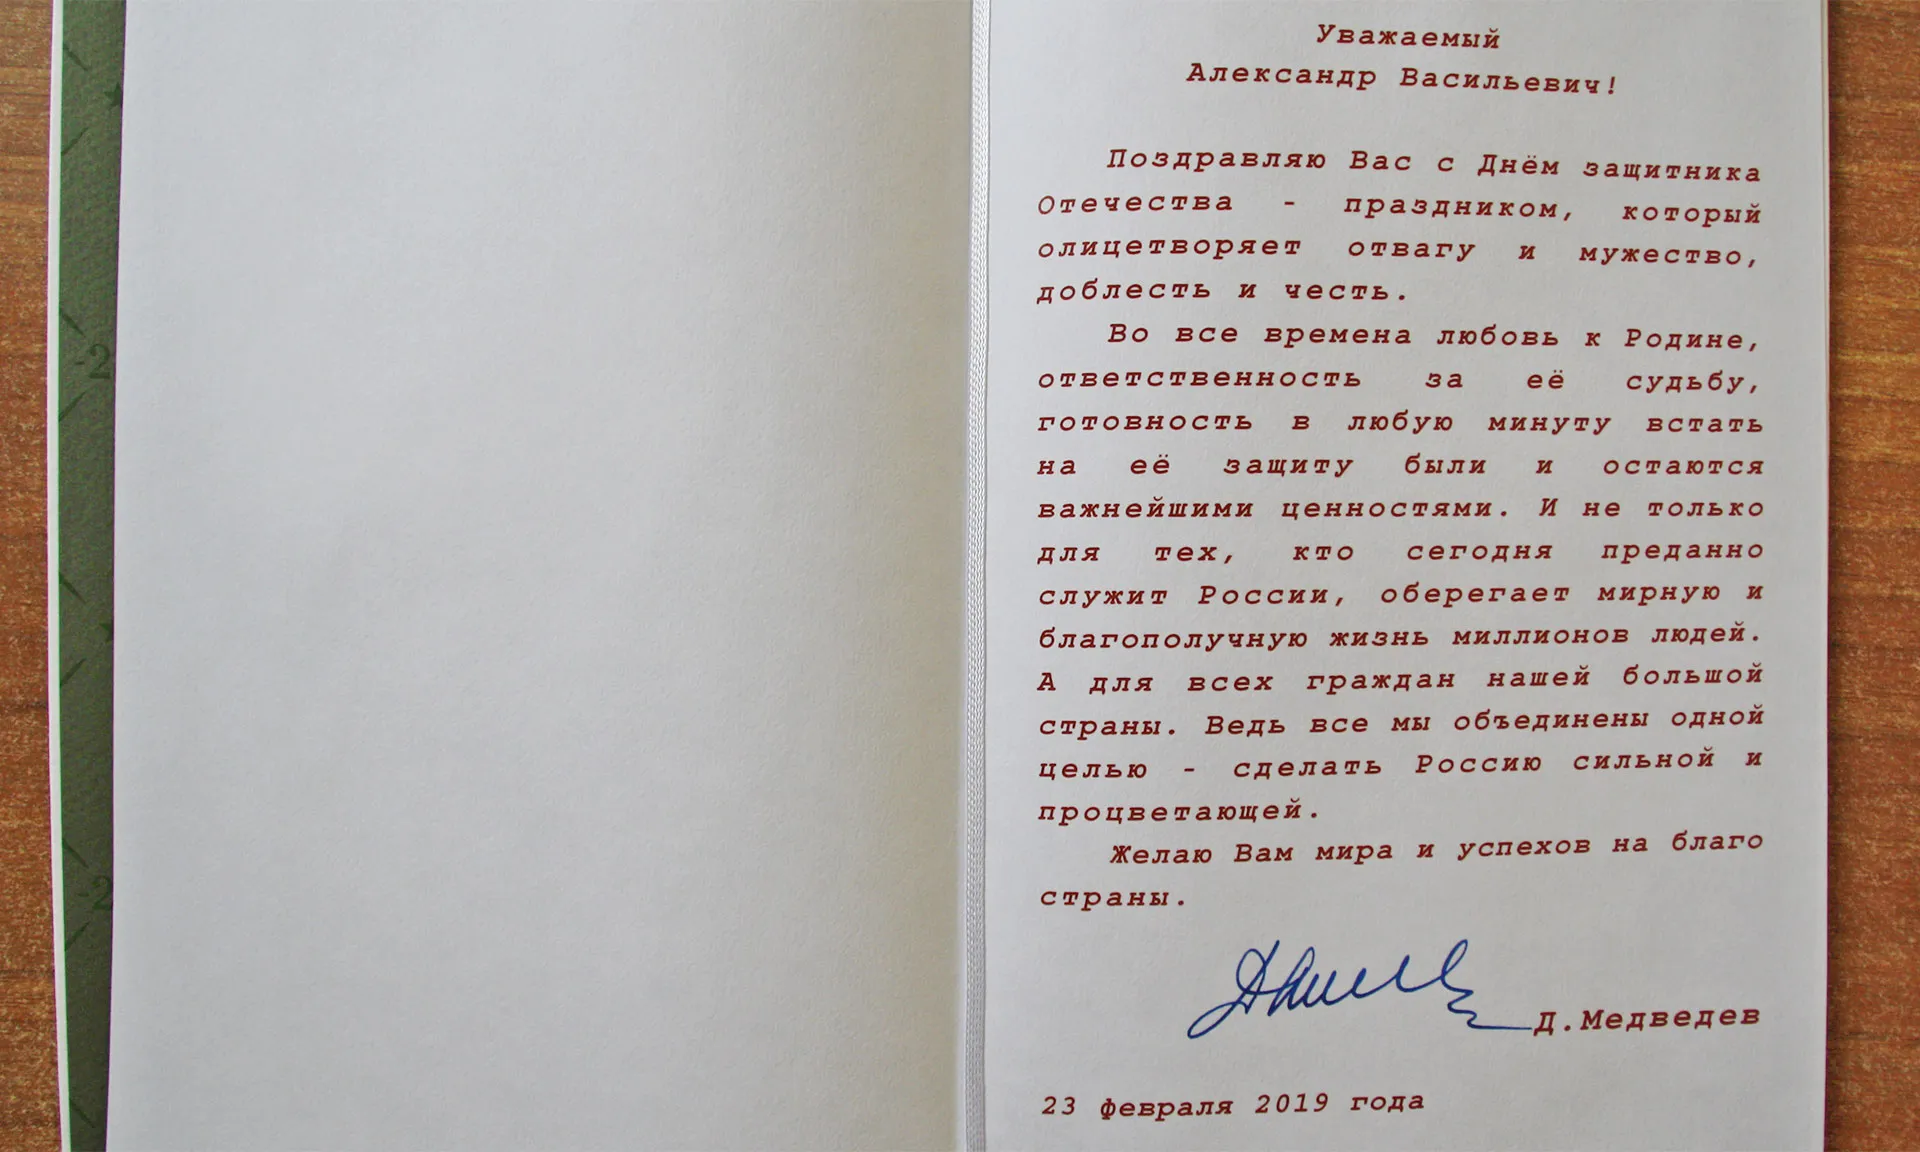 Уважаемый
Александр Васильевич!
Поздравляю Вас с Днём защитника
Отечества - праздником, который
олицетворяет отвагу и мужество,
доблесть и честь.
Во все времена любовь к Родине,
ответственность за её судьбу,
готовность в любую минуту встать
на её защиту были и остаются
важнейшими ценностями. И не только
для тех, кто сегодня преданно
служит России, оберегает мирную и
благополучную жизнь миллионов людей.
А для всех граждан нашей большой
страны. Ведь все мы объединены одной
целью - сделать Россию сильной и
процветающей.
Желаю Вам мира и успехов на благо
страны.
Д.Медведев
23 февраля 2019 года